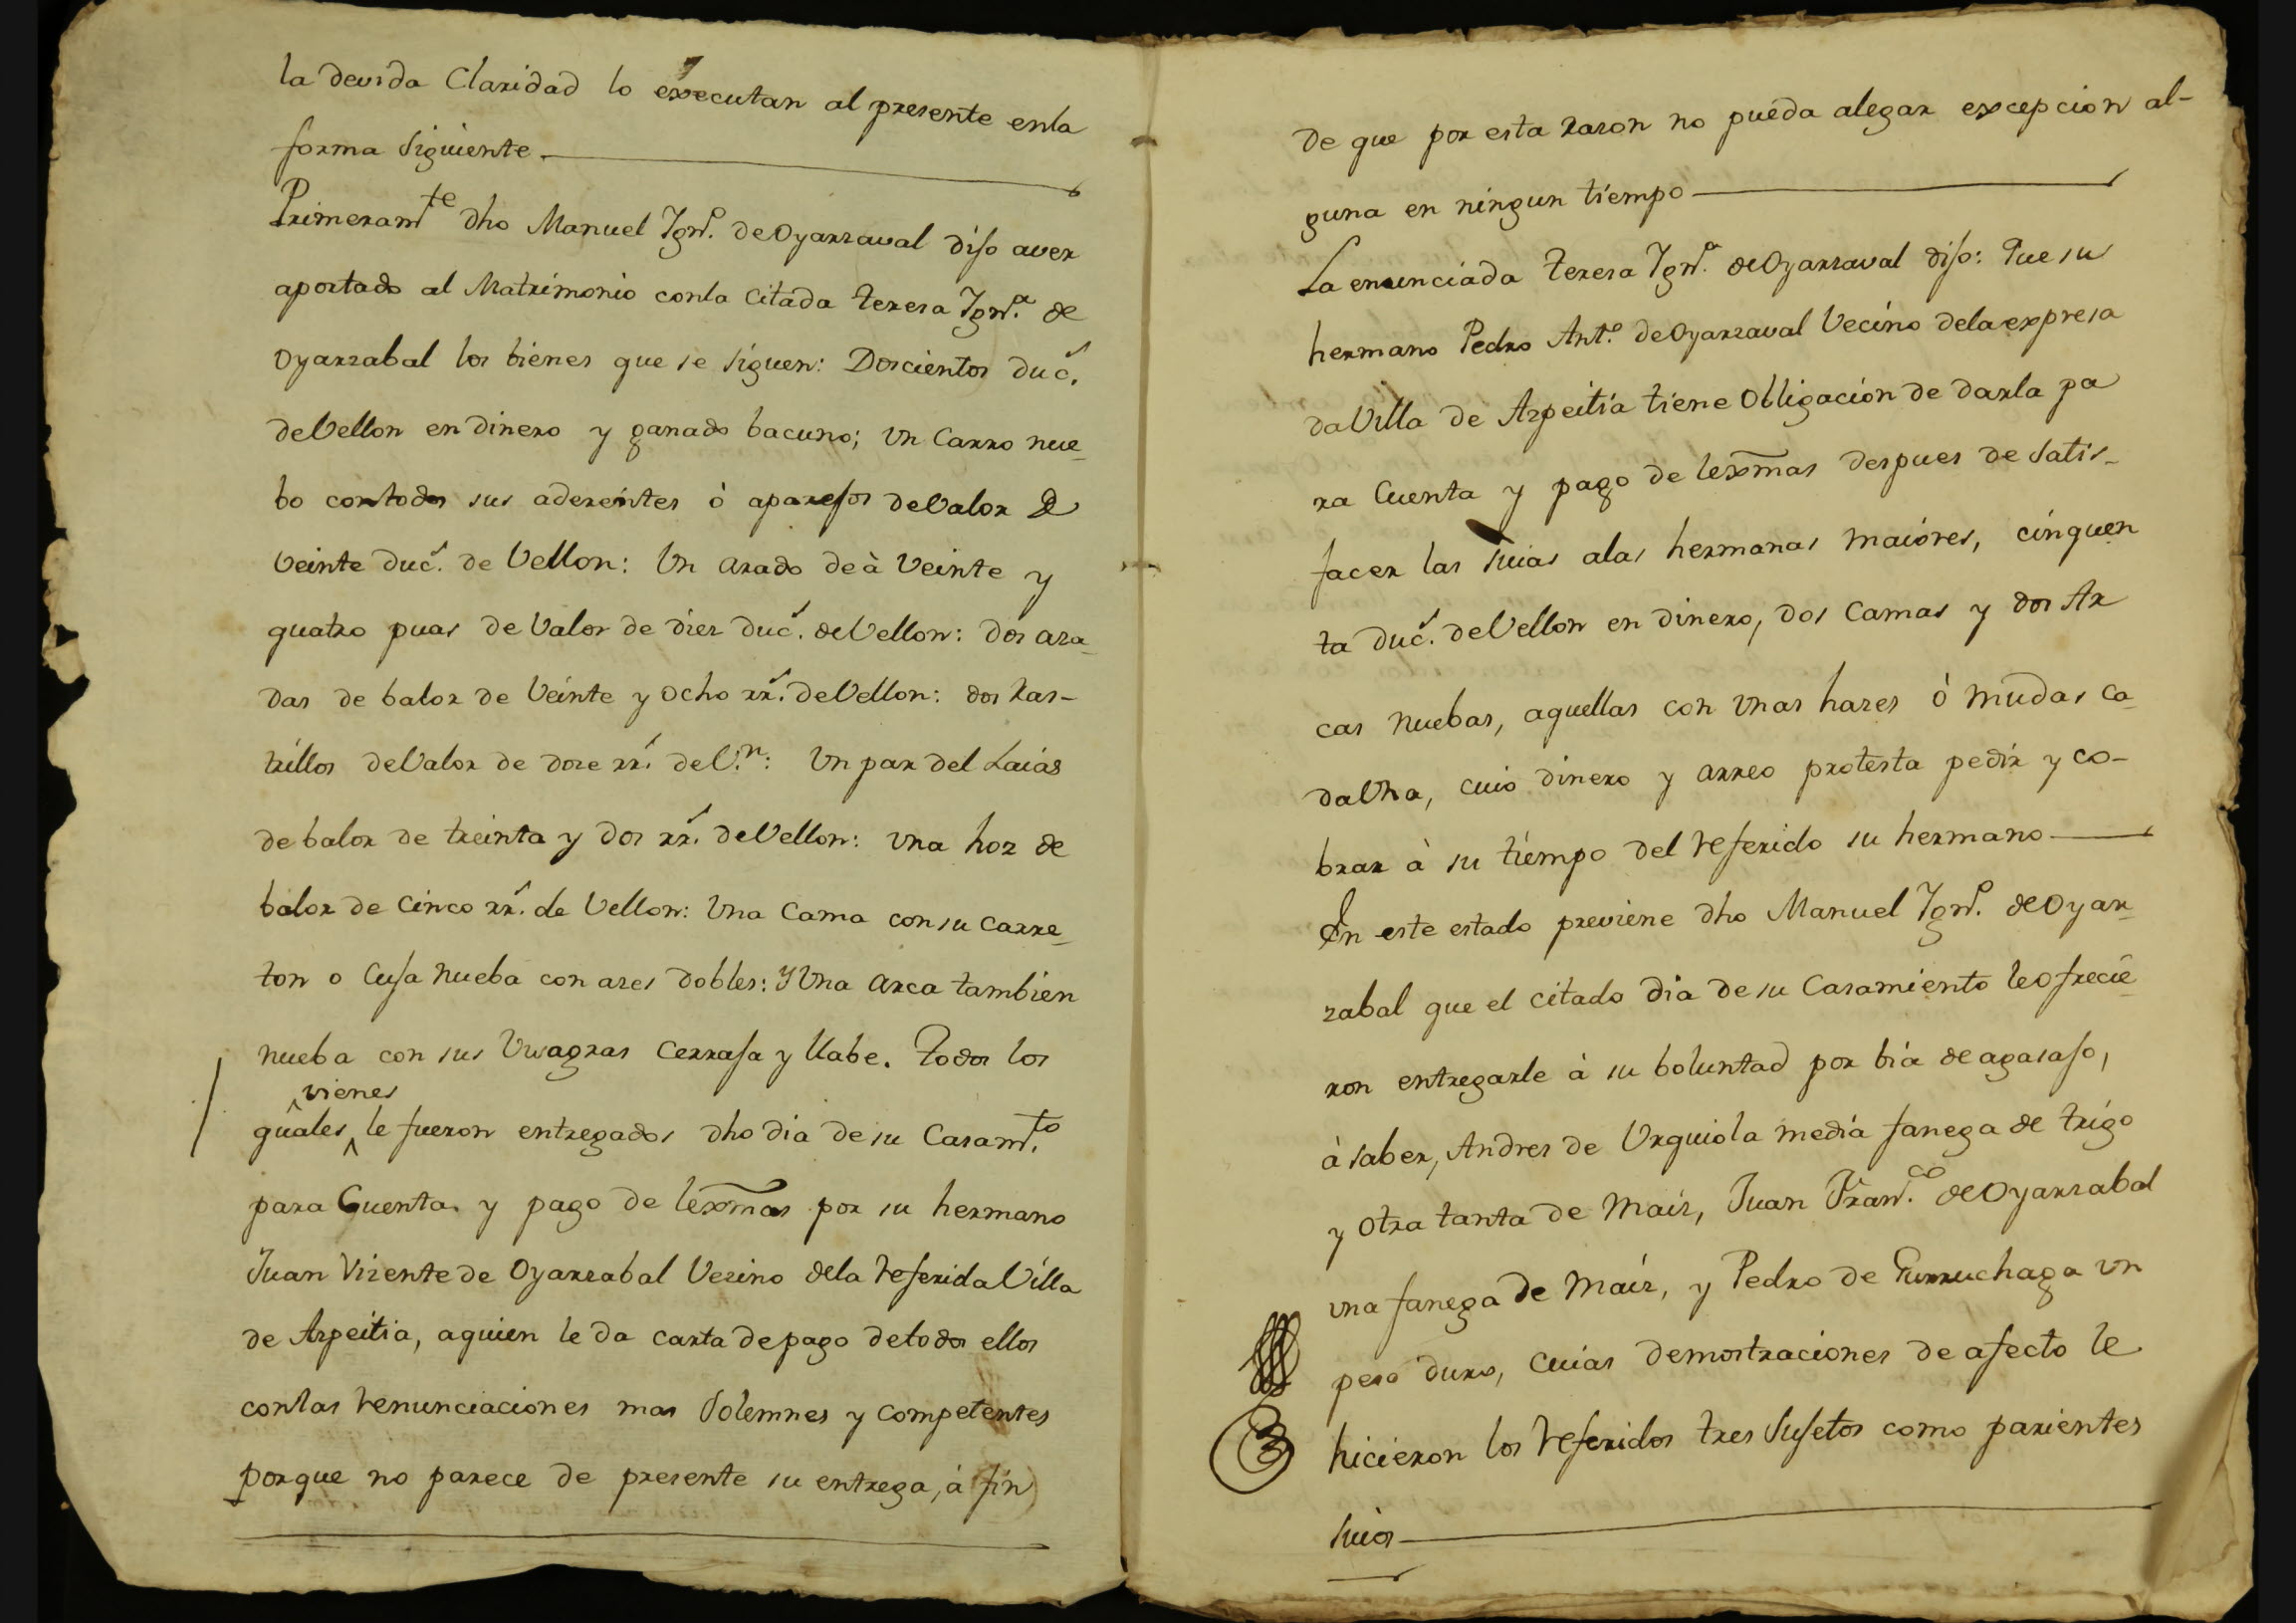 la devida Claridad lo executan al presente enla
forma siguiente
Primeramte dho Manuel Ignº. de Oyarzaval dijo aver
aportado al Matrimonio conla Citada Teresa Ignª. de
Oyarzabal los bienes que se siguen: Doscientos ducs.
de Vellon en dinero y ganado bacuno; un Carro nue-
bo contodos sus aderentes ò aparejos de Valor de
Veinte ducs. de Vellon: Un arado de à Veinte y
quatro puas de Valor de diez ducs. de Vellon: dos aza-
das de balor de Veinte y Ocho rrs. de Vellon: dos Ras-
trillos de Valor de doze rrs. de V.n: Un par del Laias
de balor de treinta y dos rrs. de Vellon: una hoz de
balor de Cinco rrs. de Vellon: Una Cama con su Carre-
ton o Cuja nueba con azes dobles: y Una Arca tambien
nueba con sus Uisagras Cerraja y llabe. Todos los
vienes
quales le fueron entregados dho dia de su Casamto.
para Cuenta y pago de lexmas por su hermano
Juan Vizente de Oyarzabal Vezino dela referida Villa
de Azpeitia, aquien le da carta de pago detodos ellos
conlas renunciaciones mas Solemnes y competentes
porque no parece de presente su entrega, á fin
de que por esta razon no pueda alegar excepcion al-
guna en ningun tiempo
La enunciada Teresa Ignª. de Oyarzaval dijo: Que su
hermano Pedro Antº. de Oyarzaval Vecino dela expresa
da Villa de Azpeitia tiene Obligacion de darla pa
ra Cuenta y pago de lexmas despues de satis-
facer las suias alas hermanas maiores, cinquen
ta ducs. de Vellon en dinero, dos Camas y dos Ar
cas nuebas, aquellas con unas hazes ò mudas ca-
da Una, cuio dinero y arreo protesta pedir y co-
brar à su tiempo del referido su hermano
En este estado previene dho Manuel Ignº. de Oyar-
zabal que el citado dia de su Casamiento leofrecie-
ron entregarle à su boluntad por bia de agasajo,
à saber, Andres de Urquiola media fanega de trigo
y otra tanta de Maiz, Juan Franco. de Oyarzabal
una fanega de Maiz, y Pedro de Gurruchaga un
peso duro, cuias demostraciones de afecto le
hicieron los referidos tres Sujetos como parientes
suios